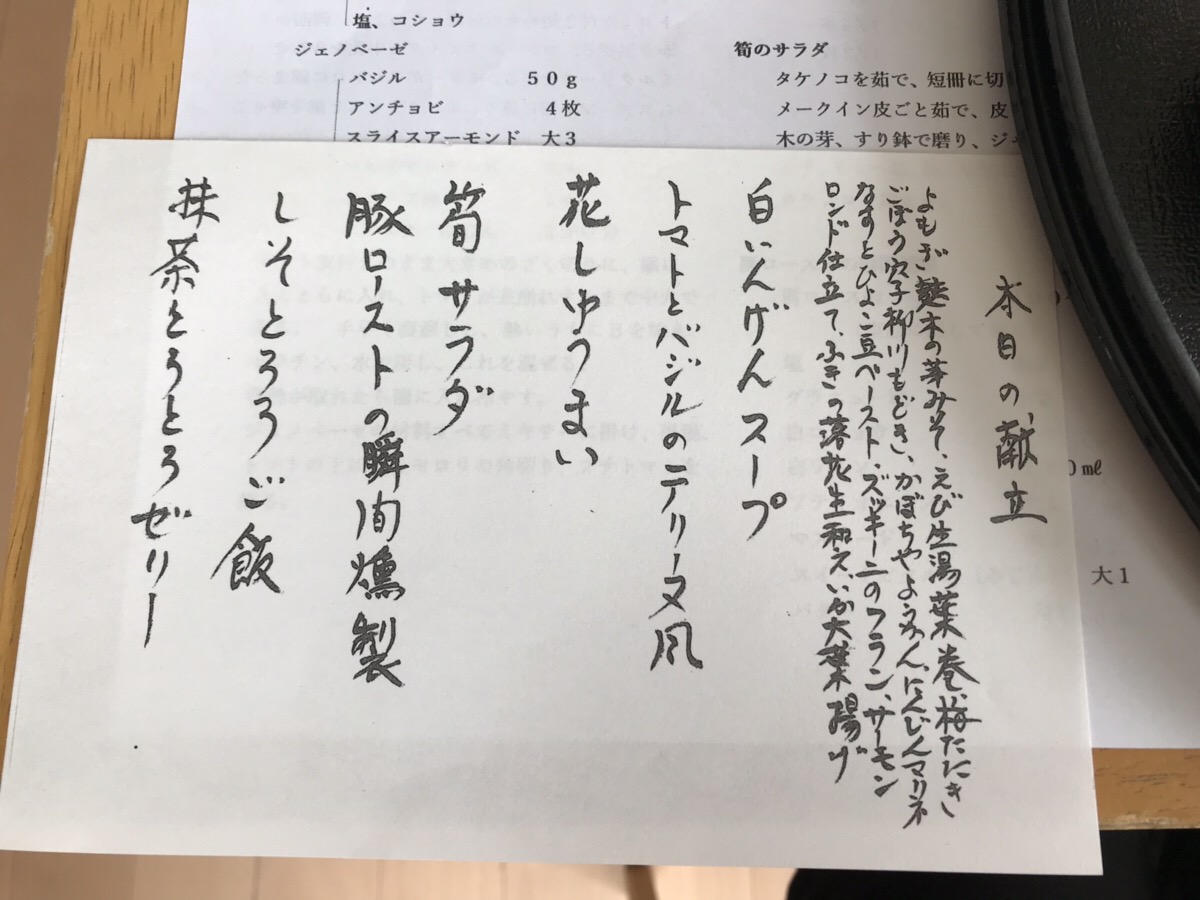 塩、コショウ
ジェノベーゼ
バジル 50g
アンチョビ 4枚
スライスアーモンド 大3
筍のサラダ
タケノコを茹で、短冊に切
メークイン皮ごと茹で、皮
木の芽、すり鉢で磨り、ジ
大1
本日の献立
よもぎ麩木の芽みそ、えび生湯葉巻、梅たたき
ごぼう穴子柳川もどき、かぼちゃようかん、にんじんマリネ
なすとひよこ豆ペースト、ズッキーニのフラン、サーモン
ロンド仕立て、ふきの落花生和え、いか大葉揚げ
白いんげんスープ
トマトとバジルのテリーヌ風
花しゅうまい
筍サラダ
豚ローストの瞬間燻製
しそとろろご飯
抹茶とうとろゼリー